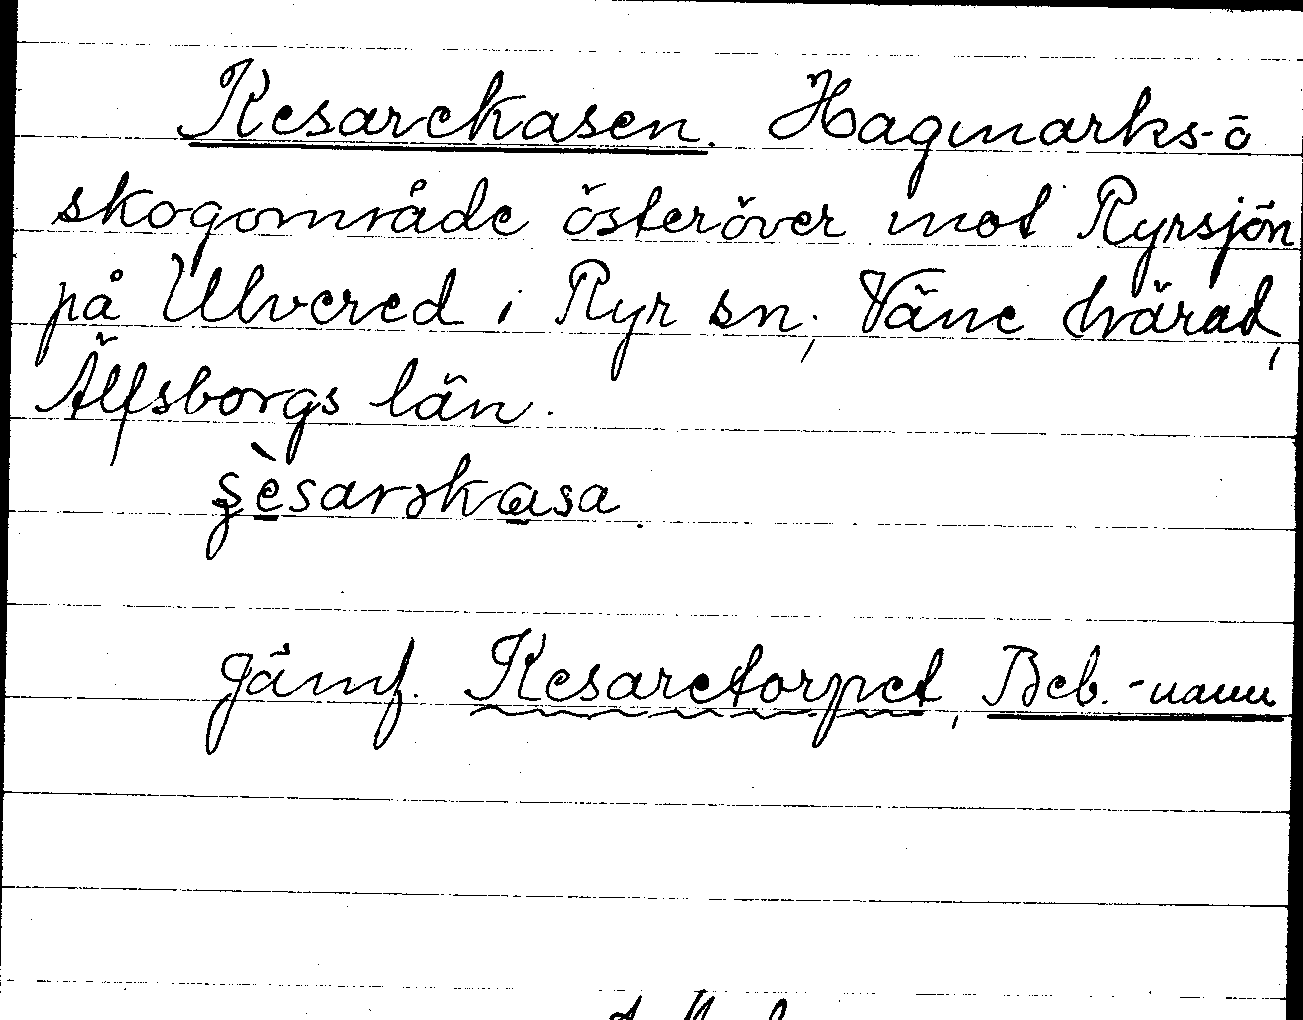 Kesarekasen. Hagmarks- o
skogområde österöver mot Ryrsjön
på Ulvered i Ryr sn, Väne härad,
Älfsborgs län.
Jämf. Kesaretorpet, Beb.-namn